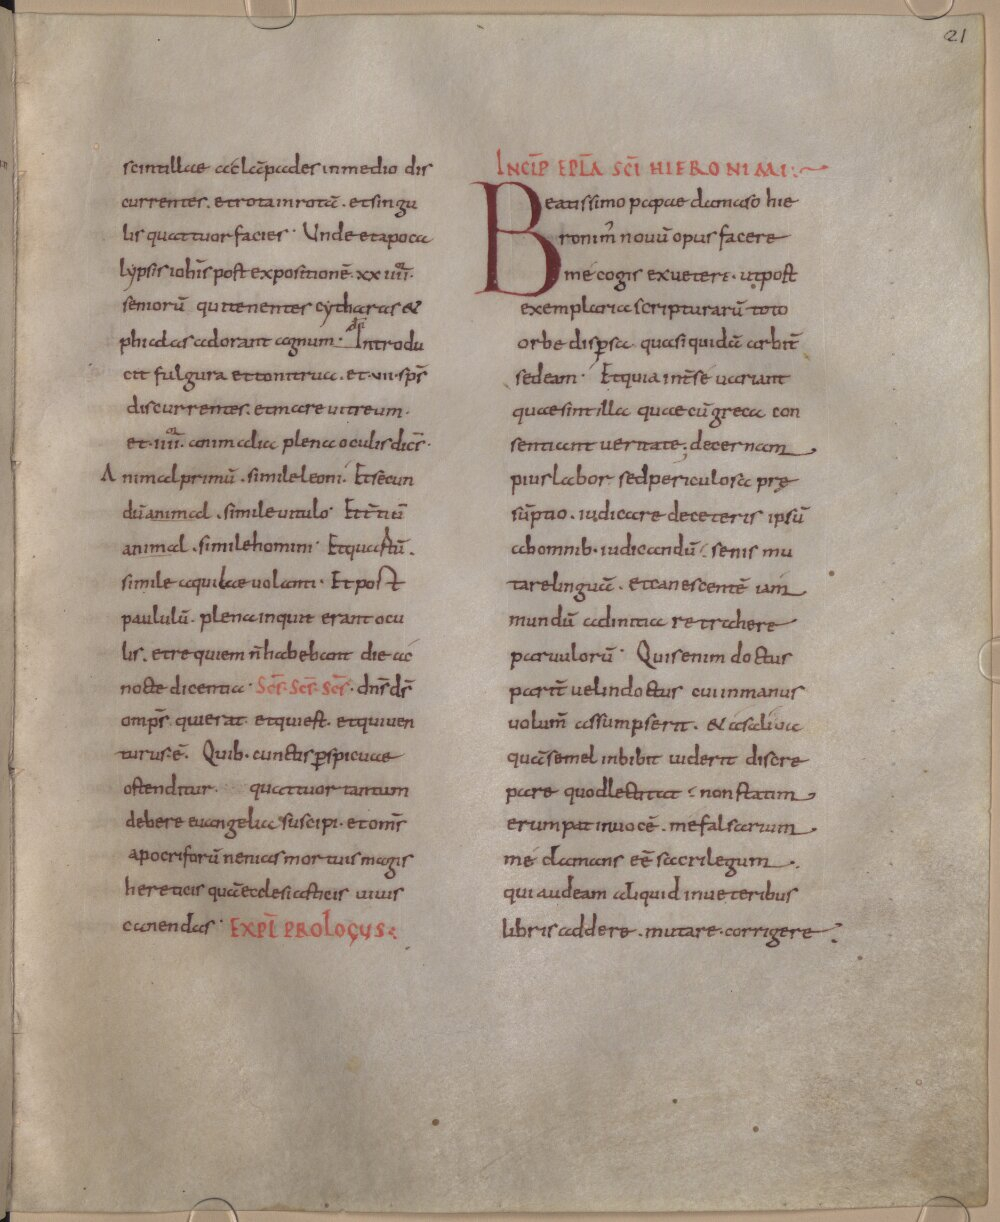 21
scintillae ac lāpades in medio dis
currentes. et rota in rota. et singu
lis quattuor facies· Unde et apoca
lypsis iohīs post expositionē· xx iiii·
seniorū qui tenentes cytharas &
phialas adorant agnum· Introdu
cit fulgura et tonitrua. et·vii·sps̄
discurrentes. et mare vitreum·
et·iiii· animalia plena oculis dices̄·
Animal primū· simile leoni· Et secun
dū animal· simile vitulo· Et t̄tiū
animal· simile homini· Et quartū·
simile aquilae volanti· Et post
paululū· plena inquit erant ocu
lis. et requiem n̄ habebant die ac
nocte dicentia· Sc̄s· Sc̄s· Sc̄s· dn̄s ds̄
omps̄. qui erat. et qui est. et qui ven
turus·ē· Quib· cunctis perspicuae
ostenditur· quattuor tantum
debere evangelia suscipi· et omīs
apocriforū nenias mortuis magis
hereticis quā ecclesiasticis vivis
canendas· EXPĪ PROLOGUS
INCIP̄ EPĪA SC̄I HIERONIMI
Beatissimo papae damaso hie
ronim̄ novū opus facere
me cogis ex vetere· ut post
exemplaria scripturarū toto
orbe dispersa quasi quidā arbit̄
sedeam· Et quia int̄ se variant
quae sint illa quae cū greca con
sentiant veritate; decernam
pius labor sed periculosa prę
sūptio· iudicare de ceteris ipsū
ab omnib· iudicandū· senis mu
tare linguā· et canescentē iam
mundū ad initia retrahere
parvulorū· Quis enim doctus
partē vel indoctus cui in manus
volum̄ assumpserit· & a saliva
quā semel inbibit viderit discre
pare quod lectitat· non statim
erumpat in vocē· me falsarium
me clamans eē sacrilegum·
qui audeam aliquid in veteribus
libris addere· mutare· corrigere